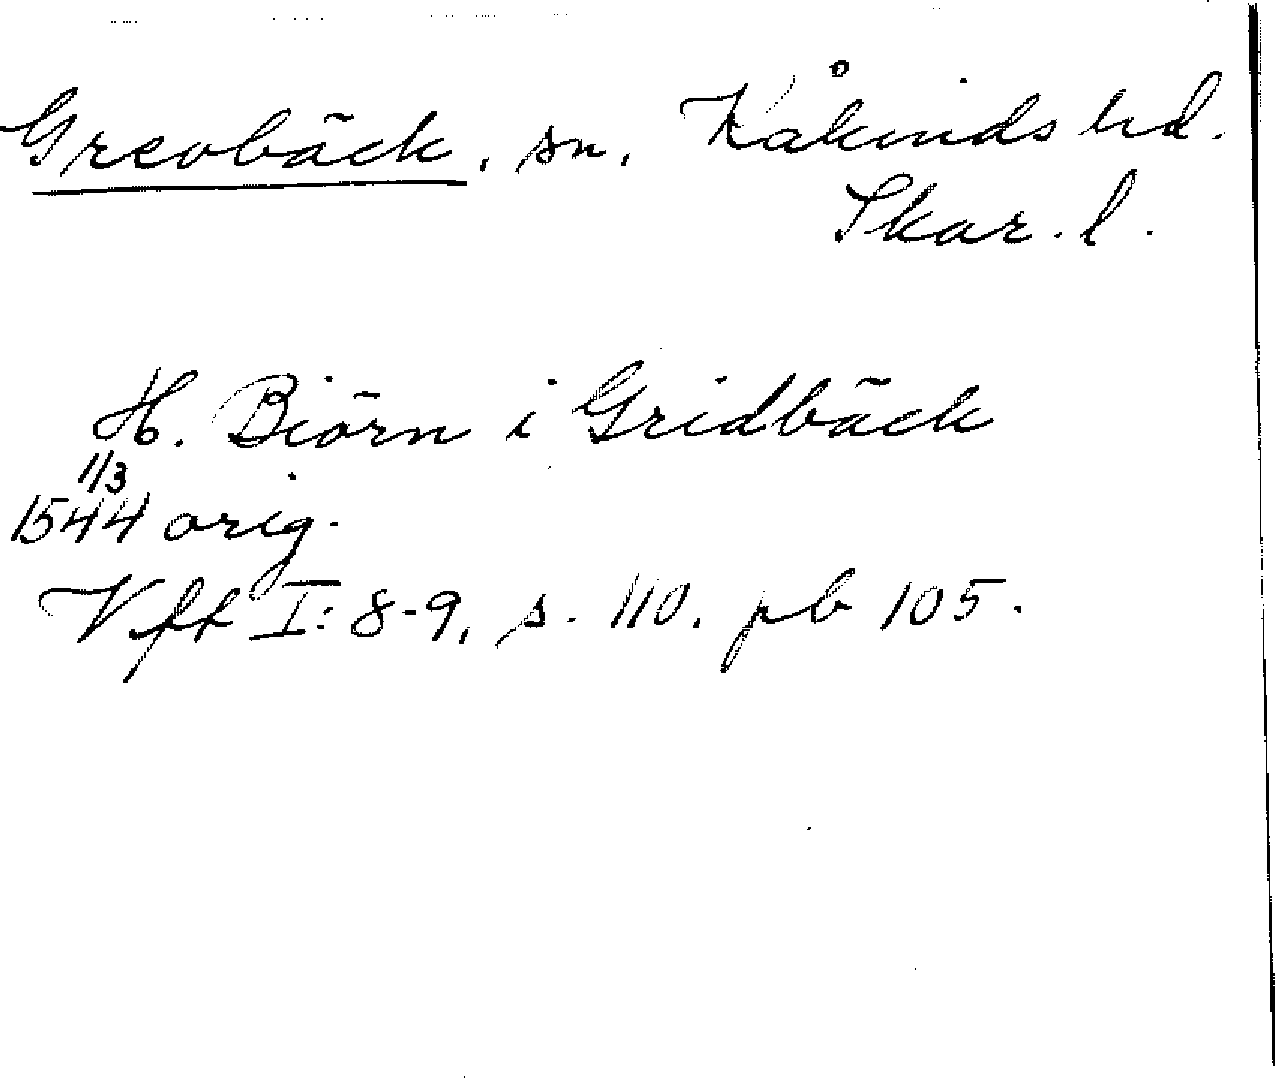 Grevbäck, sn, Kåkinds hd.
Skar. l.
H. Biörn i Gridbäck
1/3
1544 orig.
Vfft I: 8-9, s. 110. pb 105.